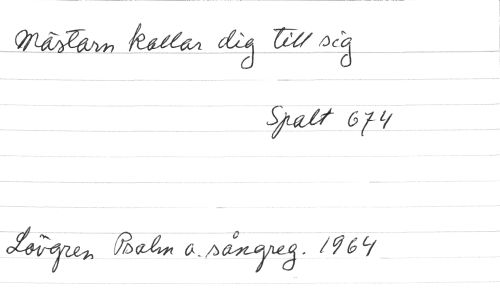 Mästarn kallar dig till sig
Spalt 674
Lövgren Psalm o. sångreg. 1964